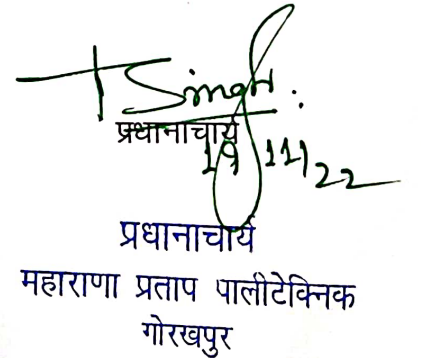 T Singh.
प्रधानाचार्य
19 11/22
प्रधानाचार्य
महाराणा प्रताप पालीटेक्निक
गोरखपुर